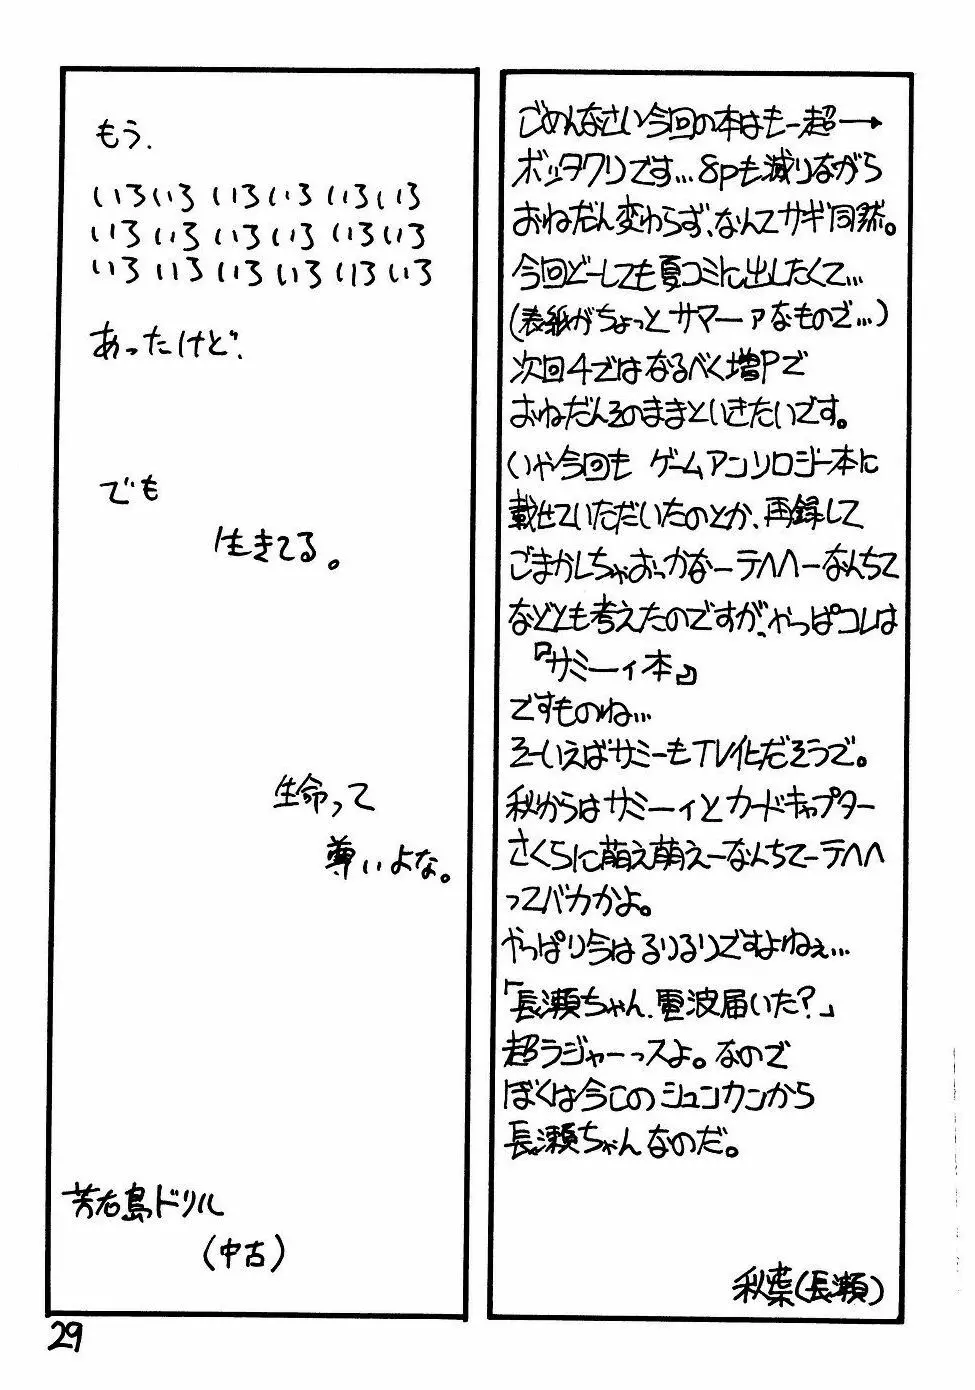 もう.
いろいろ いろいろ いろいろ
いろいろ いろいろ いろいろ
いろいろ いろいろ いろいろ
あったけど、
でも
生きてる。
生命って
尊いよな。
ドリル
(中古)
ごめんなさい今回の本はもー超ー→
ボッタクリです…8pも減りながら
おねだん変わらず、なんてサギ同然。
今回どーしても夏コミに出したくて…
(表紙がちょっとサマーァなもので…)
次回4ではなるべく増Pで
おねだんそのままといきたいです。
いや今回も ゲームアンソロジー本に
載せていただいたのとか、再録して
ごまかしちゃおっかなーテヘヘーなんちて
などとも考えたのですが、やっぱコレは
『サミーィ本』
ですものね…
そーいえばサミーもTV化だそうで。
秋からはサミーィとカードキャプター
さくらに萌え萌えーなんちてーテヘヘ
ってバカかよ。
やっぱり今はるりるりですよねぇ…
「長瀬ちゃん、電波届いた?」
超ラジャーっスよ。なので
ぼくは今このシュンカンから
長瀬ちゃんなのだ。
秋葉(長瀬)
29